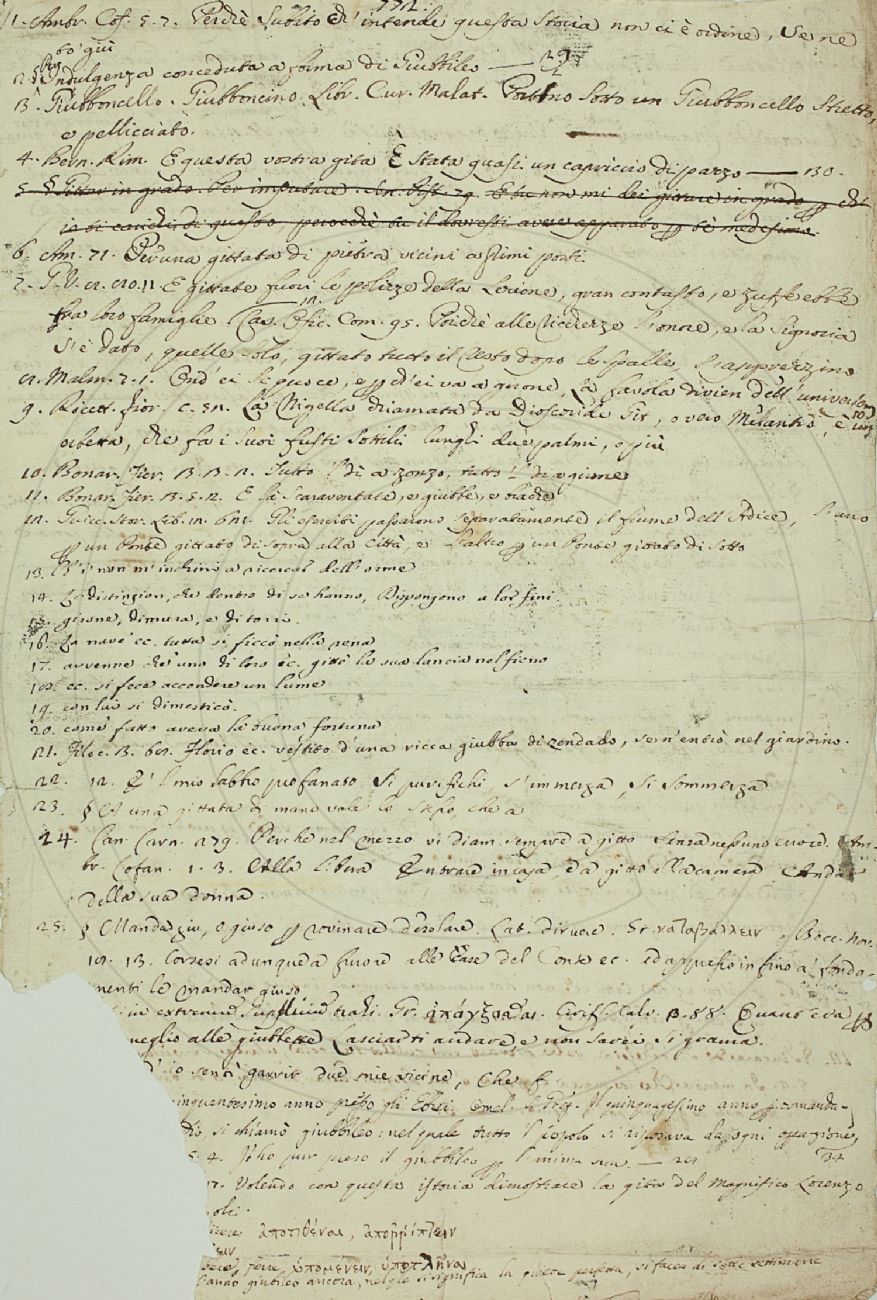 1. Ambr. Cof. 5. 2. Perchè subito ch' intende questa storia non ci è ordine, se ne
to' giù
2. § Indulgenza conceduta a forma di Giubbileo — 29
3. Giubboncello. Giubboncino. Libr. Cur. Malat. Portino sotto un Giubboncello stretto,
e pellicciato.
4. Bern. Rim. E questa vostra gita È stata quasi un capriccio di pazzo — 130.
5. § Gittar in grado. Per imputare. 29. E tu non mi dei gittare in grado
di questo, perocchè tu il dovresti avere apparato te medesimo.
6. Am. 71. Per una gittata di pietra vicini a' primi posti.
7. G. V. E gittate fuori le polizze della lezione, gran contasto, e zuffe ebbe
tra loro famiglie. Cas. Ofic. Com. 95. Poichè alle ricchezze l'onore, e la signoria
s'è dato, quelle solo, gittato tutto il resto dopo le spalle, s'apprezzino
Malm. 7. 1. Ond' ei si pasce, e va a girone, La favola divien dell' universo
9. Ricett. Fior. La Nigella chiamata da Dioscoride Git, o vero Melantio, è un'
erbetta, che fa i suoi fusti sottili lunghi due palmi, e più
10. Bonar. Fier. Tutto 'l dì a zonzo, tutto 'l dì
11. Bonar. Fier. E la scaraventate, e giubbe, e
12. Guicc. Stor. Lib. Gli eserciti passarono separatamente il fiume dell' Adice, l'uno
un Ponte gittato di sopra alla Città, e l'altro un Ponte gittato di sotto
13. S' i' non m'inchino a ricercar dell' orme
14. Le distinzion, che dentro di se hanno, Dispongono a lor fini.
15. girone, di mura, e di torri.
16. La nave ec. tutta si ficcò nella rena
17. avvenne che uno di loro ec. gittò la sua lancia nel fieno
18. ec. si fece accendere un lume
19. con lui si dimesticò.
20. come fatto aveva la buona fortuna
21. Filoc. Florio ec. vestito d'una ricca giubba di zendado, se n'entrò nel giardino.
22. 12. E 'l mio labbro profanato Si purifichi, s'immerga, Si sommerga
23. § A una gittata di mano vale lo stesso, che a
24. Can. Carn. 279. Perchè nel mezzo vi diam sempre a gitto Senza nessuno errore. Am-
br. Cofan. 1. 3. Alla libera Entrare in casa, e a gitto in camera Andar
della sua donna.
25. § Mandar giù, o giuso rovinare desolare. Lat. diruere. Gr. καταβάλλειν. Bocc. Nov.
13. Corsesi adunque a furore alle case del Conte ec. ed appresso infino a' fonda-
menti le mandar giuso
in extremum supplicium trahi. Gr. Ciriff. Calv.
meglio alle giubbette Lasciarti andare, e non saréi sì grama.
io sentì garrir due mie vicine, Che
cinquantesimo anno presso gli Ebrei. Il quinquagesimo anno
Dio, si chiamò giubbileo: nel quale tutto 'l popolo si riposava da ogni operazione,
5. 4. Piho pur preso il giubbileo l'anima sua —
17. Volendo con questa istoria dimostrare la gita del Magnifico Lorenzo
ἀποτιθέναι, ἀπορρίπτειν
ferre, ὑπομένειν, ὑποτλῆναι
l'anno giubileo ancora, nel si significa la quiete perfetta, si facea di sette settimane